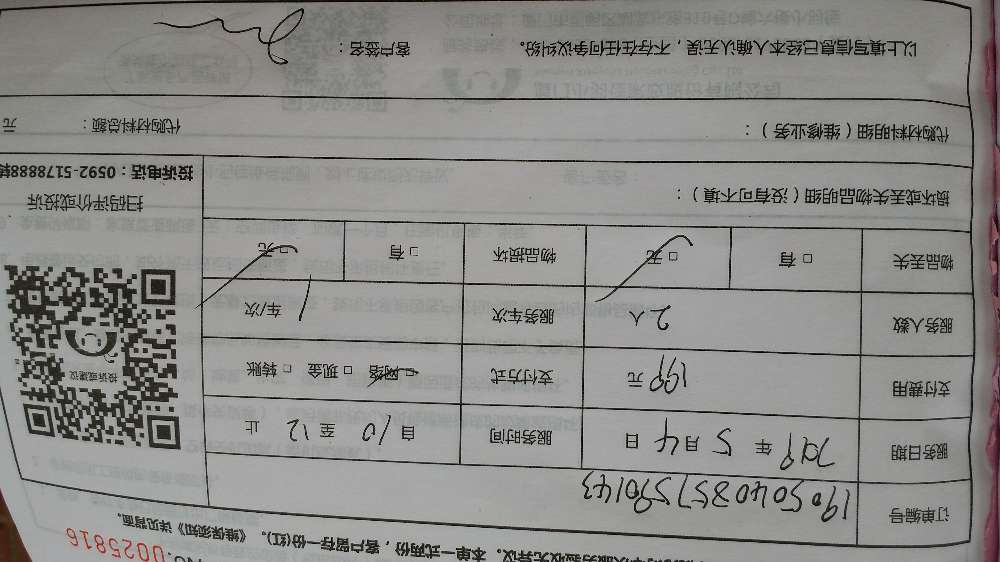 No.0025816
次服务验收无异议。本单一式两份，客户留存一份(红)。《维保须知》详见背面。
订单编号 1905040357590143
服务日期 2019 年 5 月 4 日 服务时间 自 10 至 12 止
支付费用 199 元 支付方式 □ 网络 □ 现金 □ 转账
服务人数 2 人 服务车次 1 车/次
物品丢失 □ 有 □ 无 物品损坏 □ 有 □ 无
投诉或建议
损坏或丢失物品明细（没有可不填）：
扫码评价或投诉
投诉电话：0592-5178888转
代购材料明细（维修业务）：
代购材料总额： 元
以上填写信息已经本人确认无误，不存在任何争议纠纷。
客户签名：